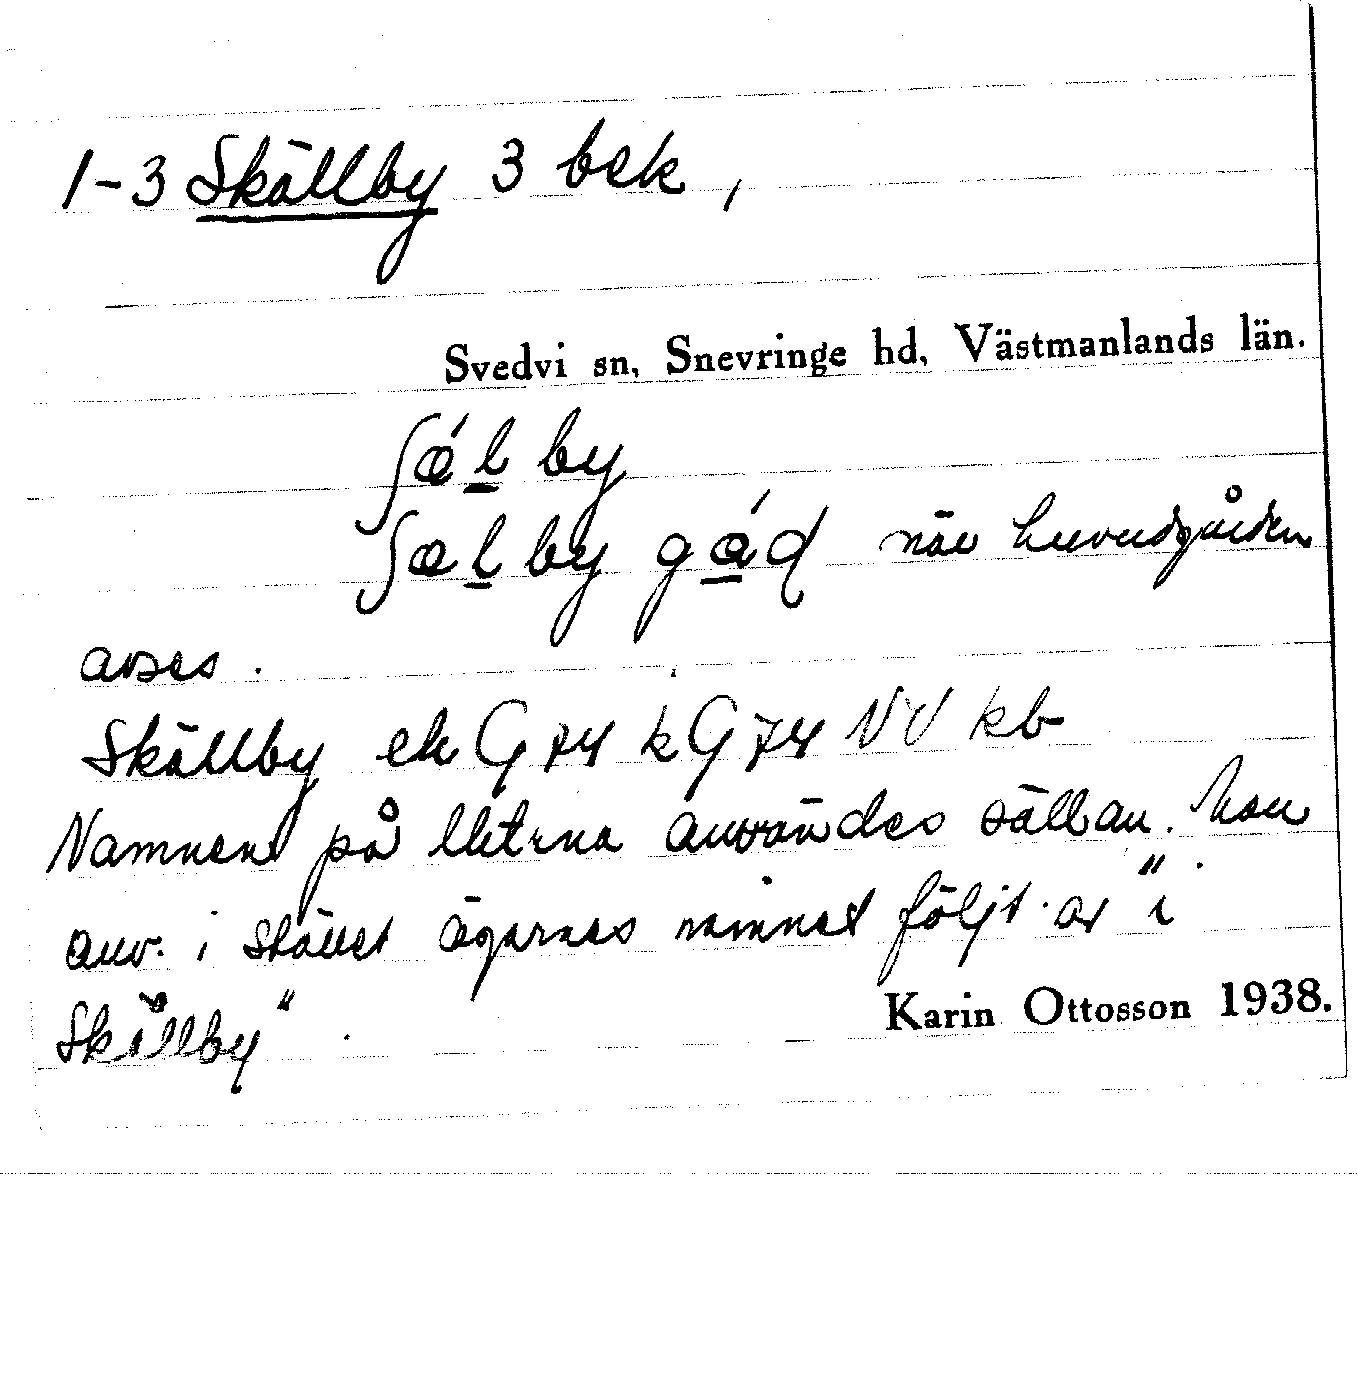 1-3 Skällby 3 bek,
Svedvi sn, Snevringe hd, Västmanlands län.
ʃǽl by
ʃæl by gáɖ när huvudgården
avses.
Skällby ek G 74 k G 74 NV kb
Namnen på littrna användes sällan. han
anv. i stället ägarnas namnet följt av "i
Skällby".
Karin Ottosson 1938.